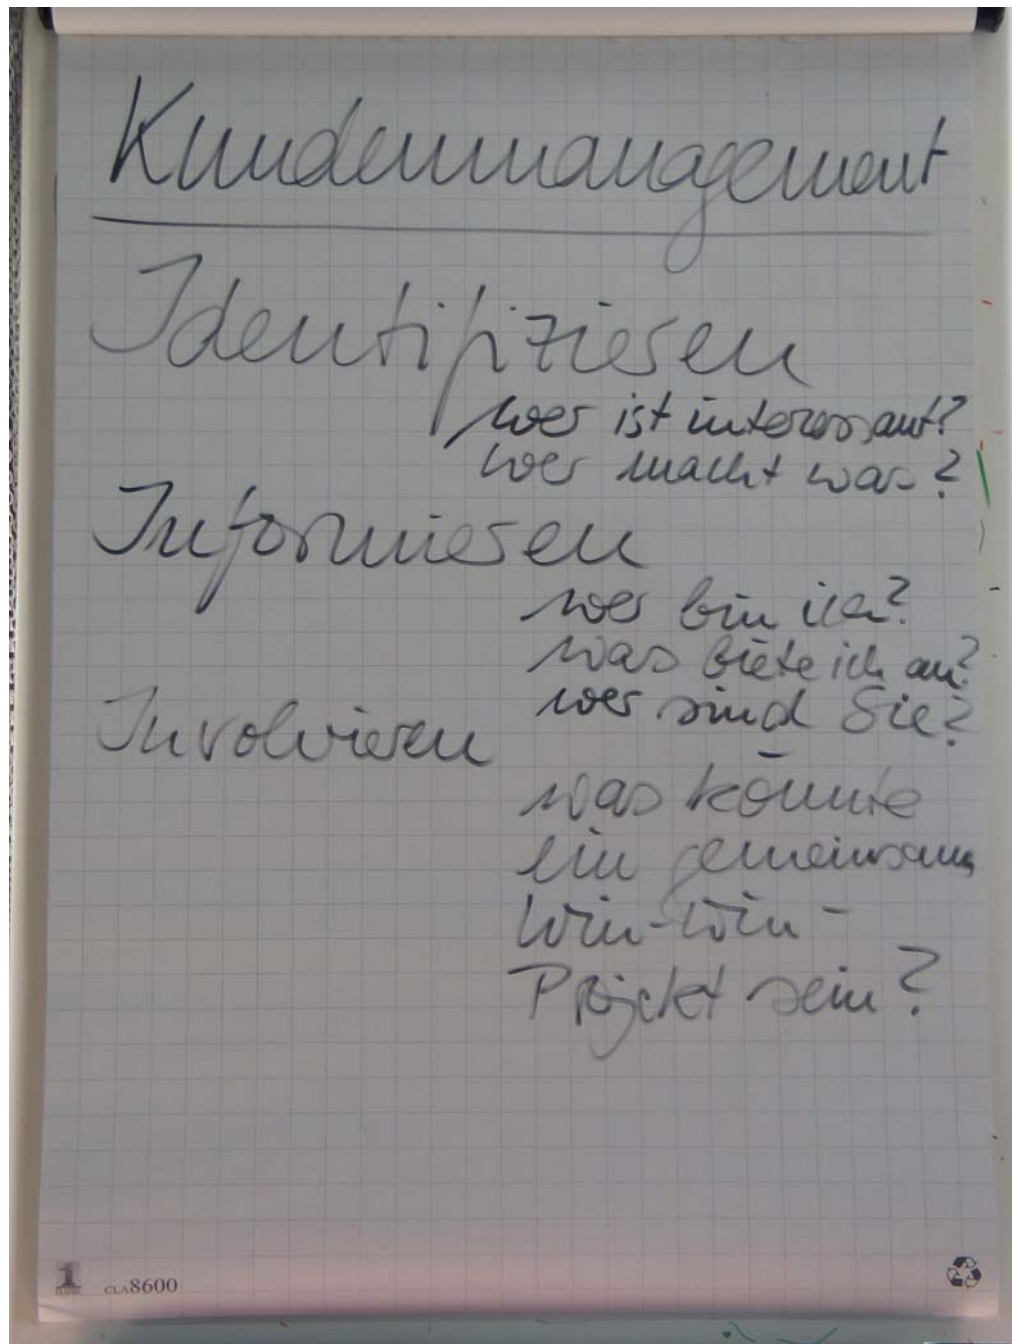 Kundenmanagement
Identifizieren
wer ist interessant?
wer macht was?
Informieren
wer bin ich?
was biete ich an?
wer sind Sie?
Involvieren
was könnte
ein gemeinsames
Win-Win-
Projekt sein?
1
CLA8600